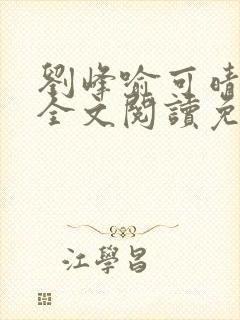 劉峰喻可晴
全文閱讀免
江學昌